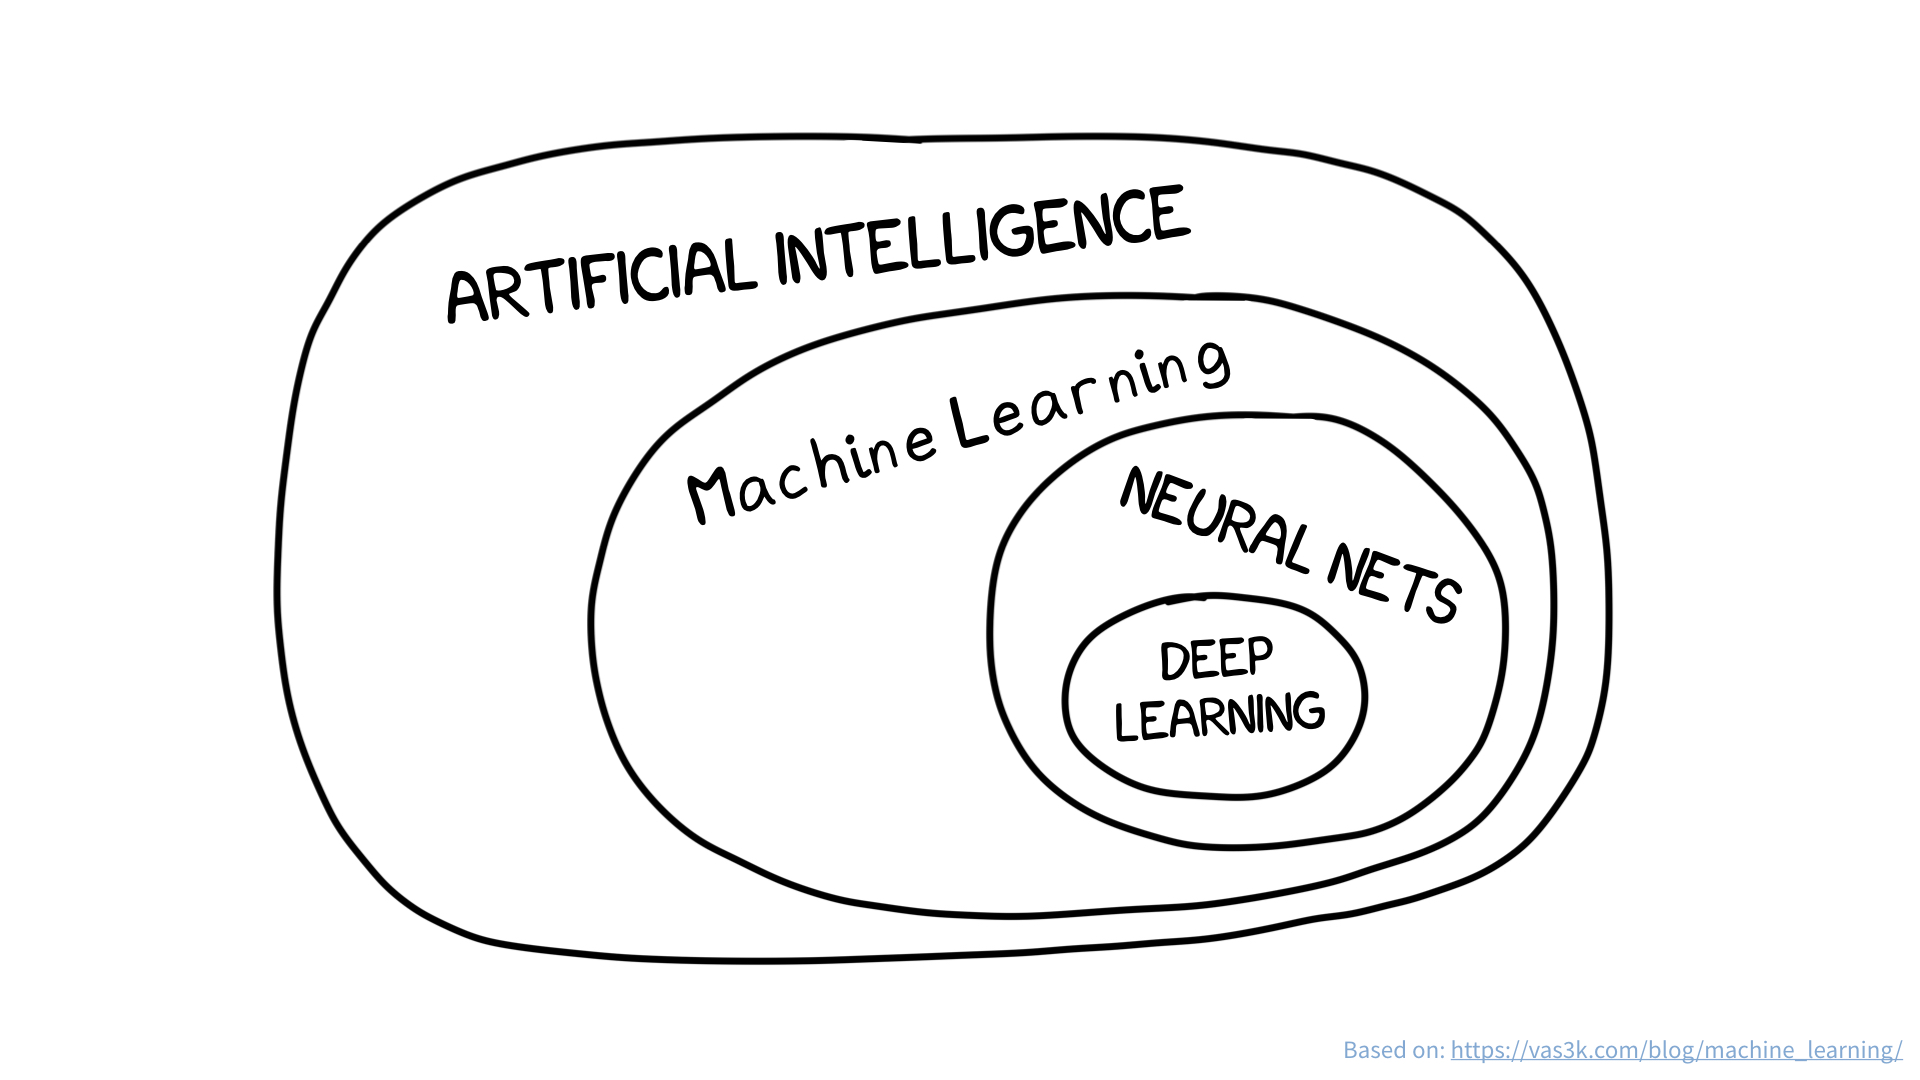 ARTIFICIAL INTELLIGENCE
Machine Learning
NEURAL NETS
DEEP
LEARNING
Based on: https://vas3k.com/blog/machine_learning/